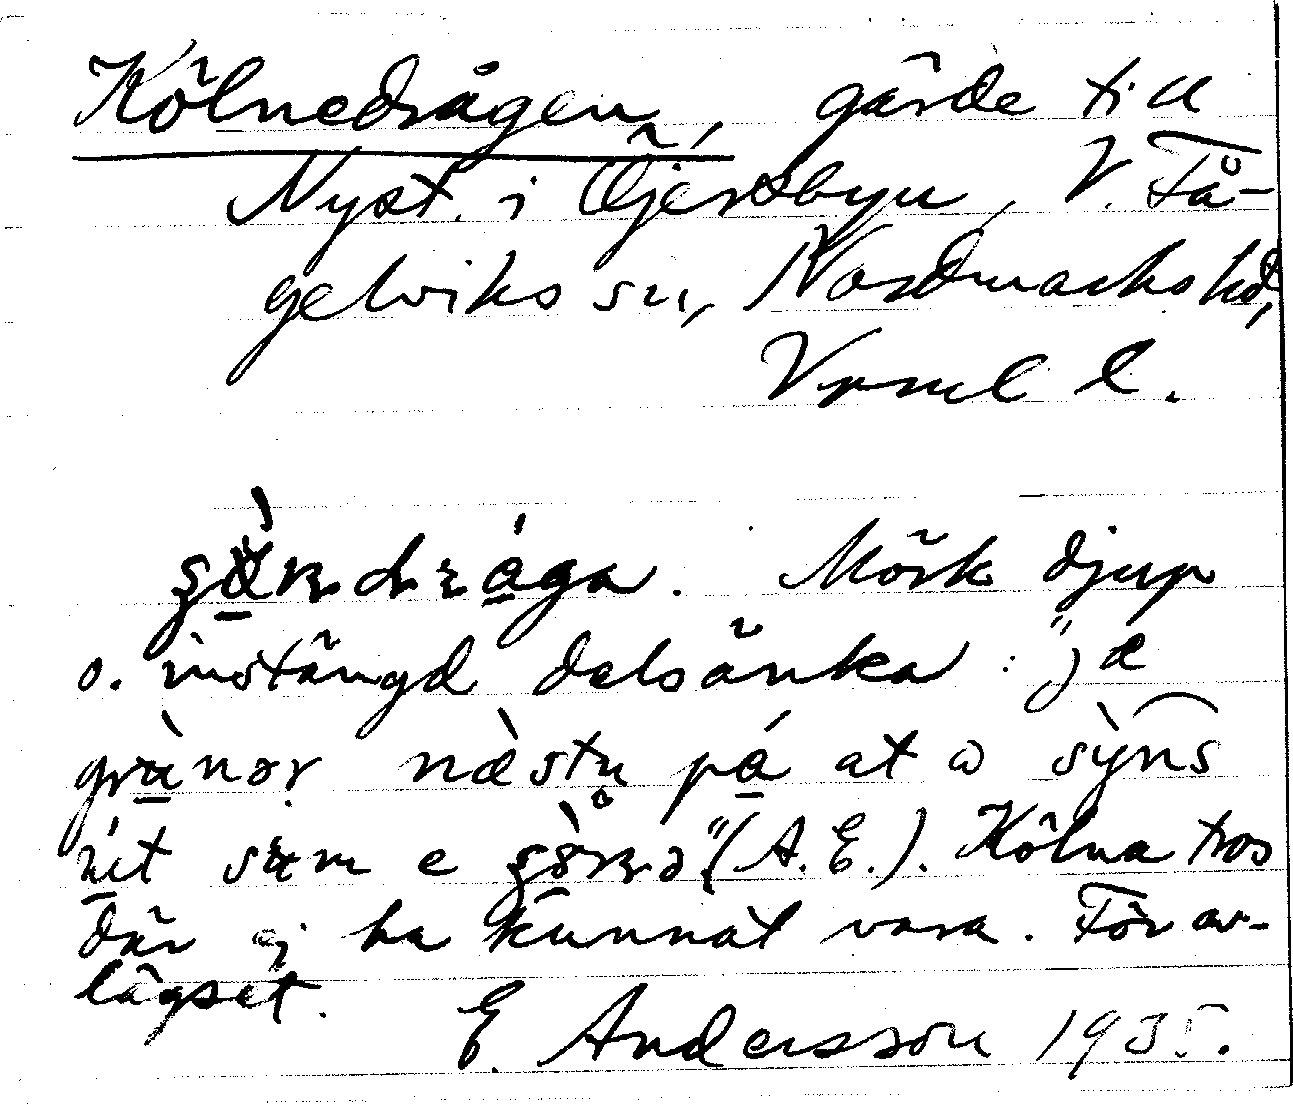 Kölnedrågen, gärde till
Nyst. i Öjersbyn, V. Få-
gelviks sn, Nordmarks hd,
Vrml l.
. Mörk djup
o. instängd dalsänka : "jæ
grànər næstn på at ω sỳns
nit sœm e (A.E.). Kölna tros
där ej ha kunnat vara. För av-
lägset.
E. Andersson 1935.